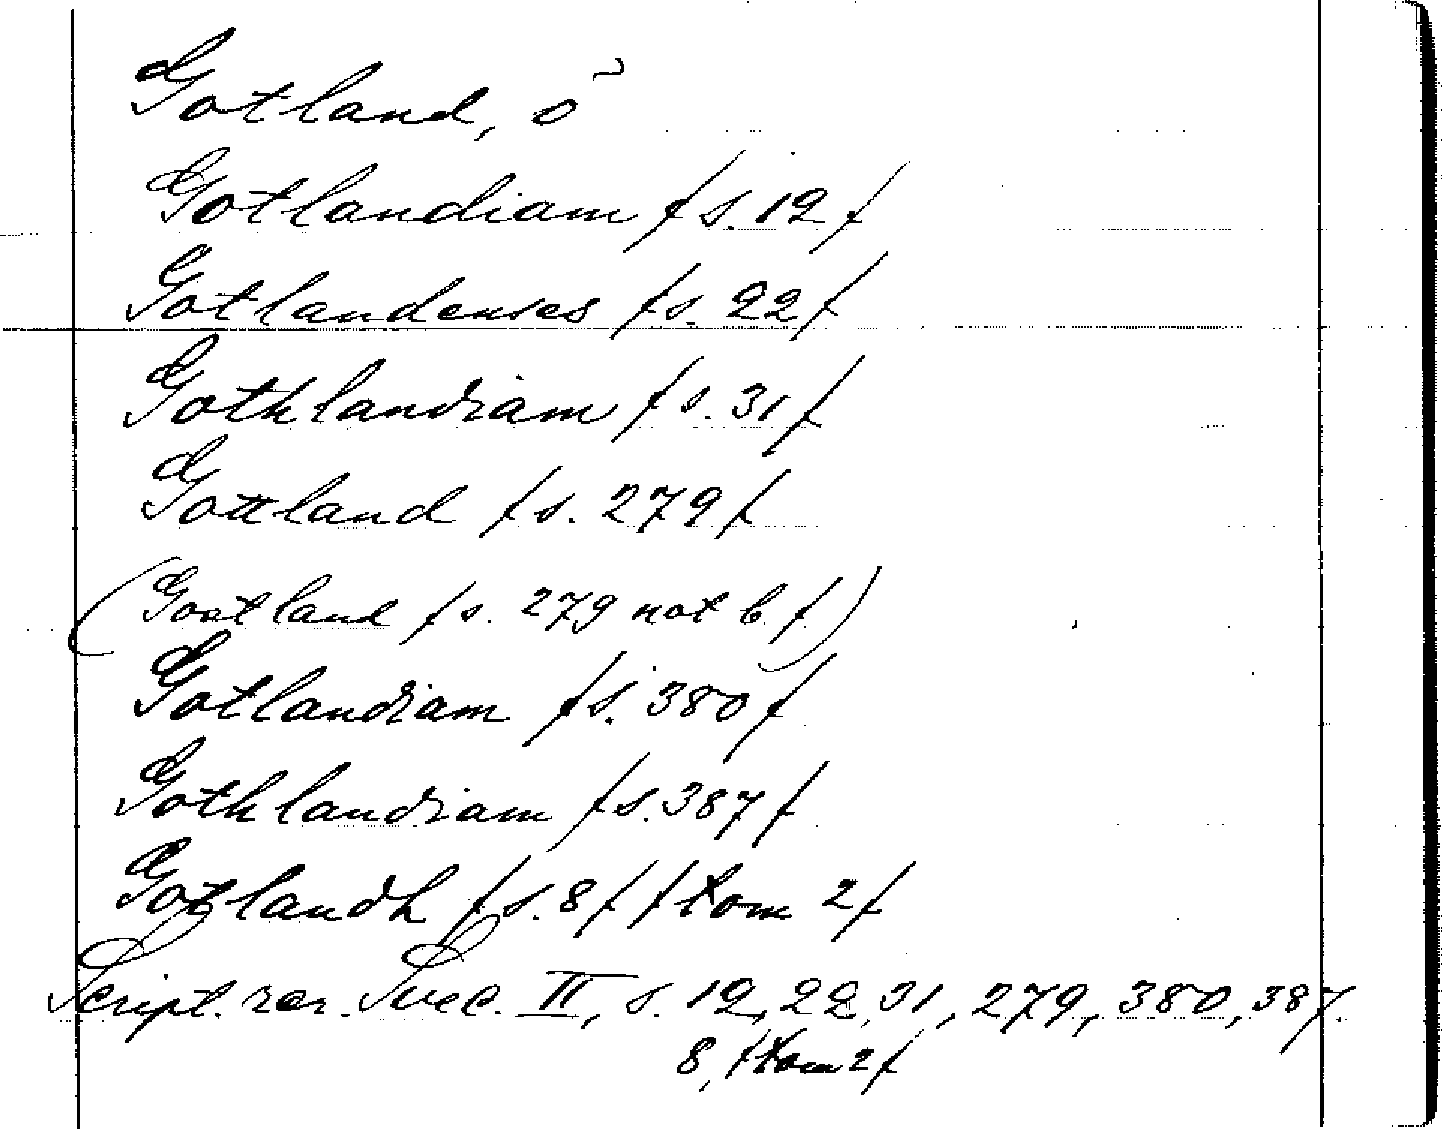 Gotland, ö
Gotlandiam /s. 12/
Gotlandenses /s. 22/
Gothlandiam /s. 31/
Gottland /s. 279/
(Goatland /s. 279 not b/)
Gotlandiam /s. 380/
Gothlandiam /s. 387/
Gotlandh /s. 8/ /tom 2/
Script. rer. Svec. II, s. 12, 22, 31, 279, 380, 387.
8, /tom 2/